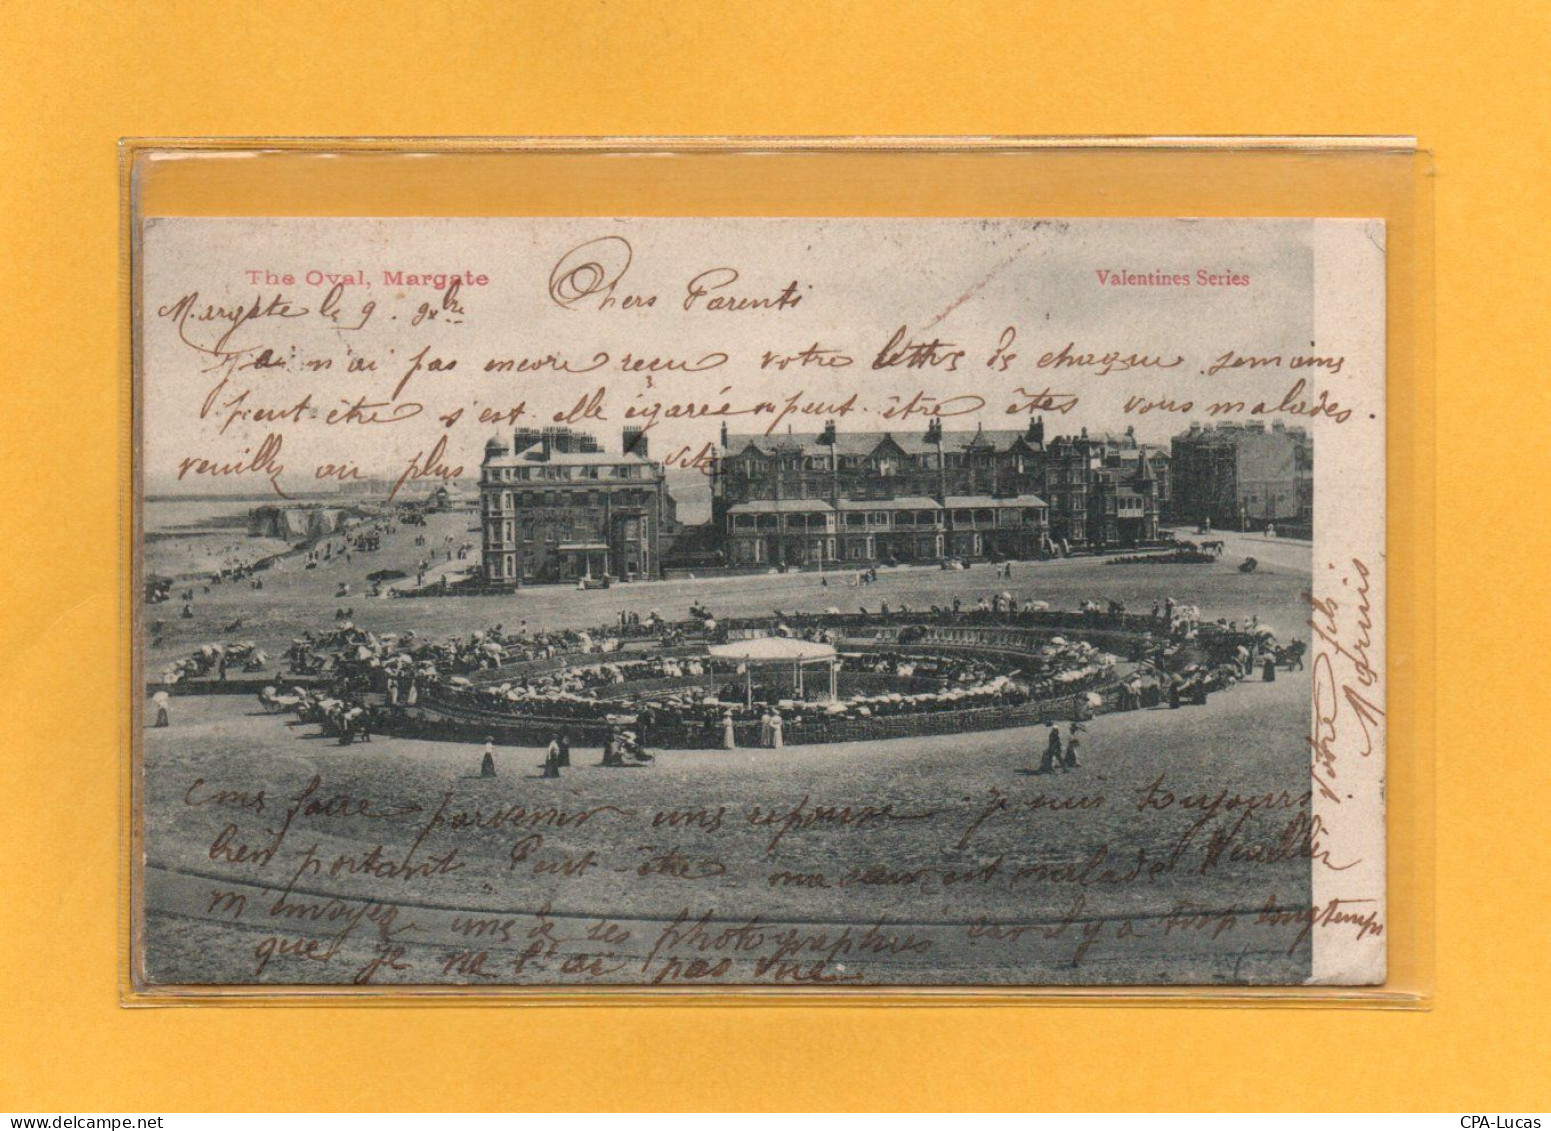 The Oval, Margate
Valentines Series
Margate le 9. 9bre
Chers Parents
J'ai n'ai pas encore recu votre lettre de chaque semaine
peut-être s'est elle égarée ou peut-être êtes vous malades.
veuillez au plus vite
me faire parvenir une reponse je suis toujours
bien portant Peut-être ma soeur est malade. Veuillez
m'envoyez une de ses photographies car il y a trop longtemps
que je ne l'ai pas vue
Votre fils
CPA-Lucas